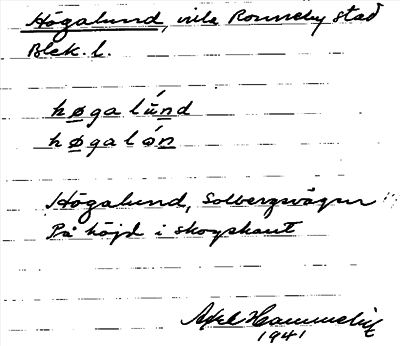 Högalund, villa Ronneby stad
Blek. l.
høgalúnd
høgalón
Högalund, Solbergsvägen
På höjd i skogskant
Axel
1941